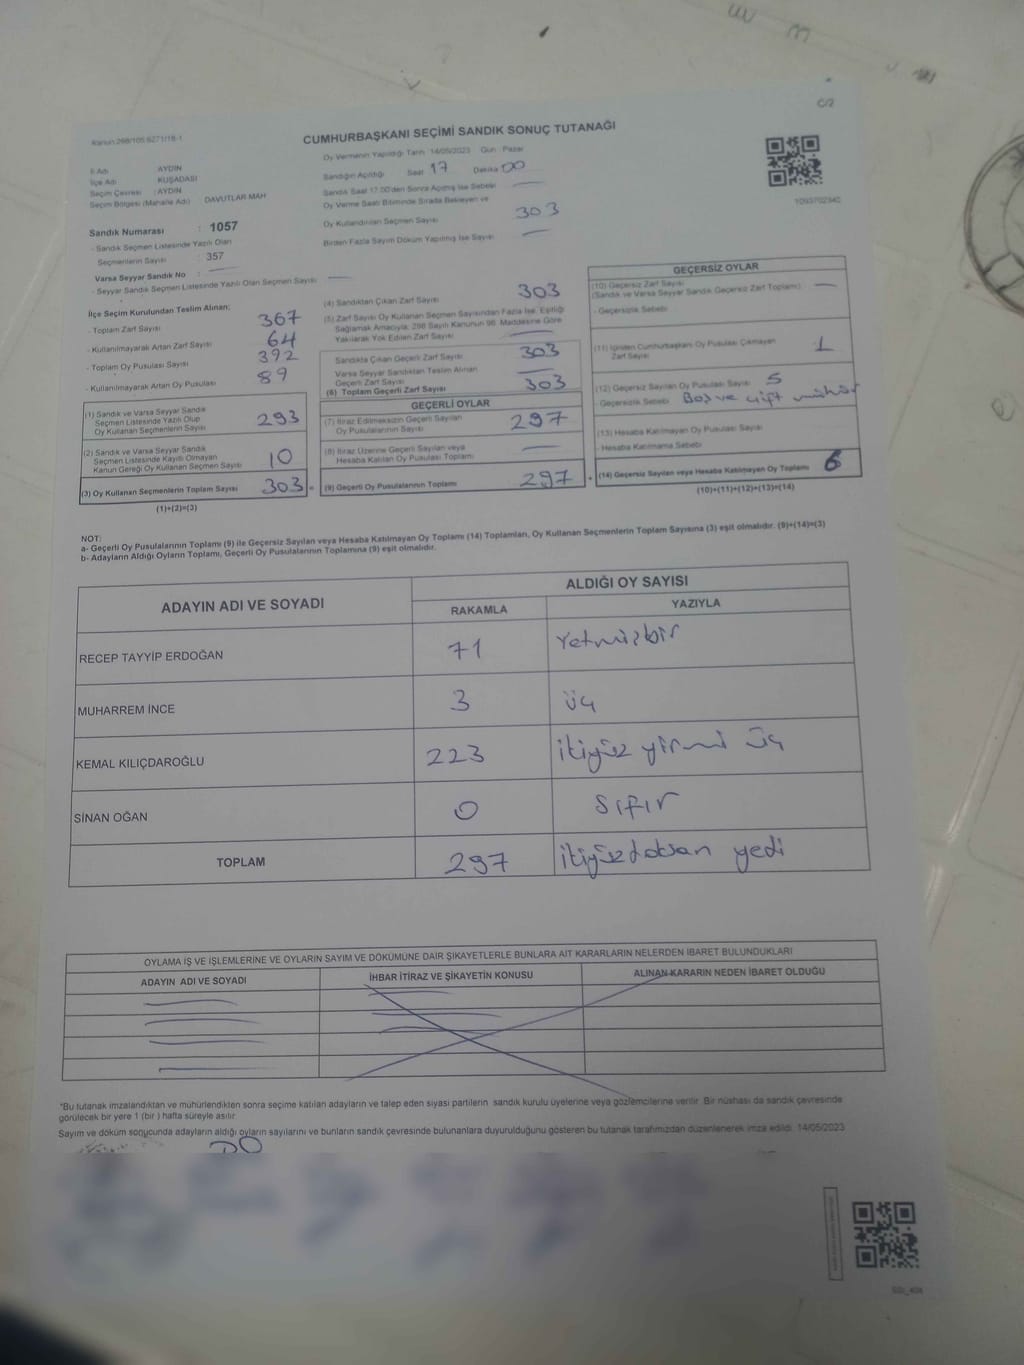 C/2
Kanun:298/105 6271/18-1
CUMHURBAŞKANI SEÇİMİ SANDIK SONUÇ TUTANAĞI
Oy Vermenin Yapıldığı Tarih :14/05/2023 Gün : Pazar
İl Adı : AYDIN
İlçe Adı : KUŞADASI
Seçim Çevresi : AYDIN
Seçim Bölgesi (Mahalle Adı) DAVUTLAR MAH
Sandığın Açıldığı Saat 17 Dakika 00
Sandık Saat 17.00'den Sonra Açılmış İse Sebebi
Oy Verme Saati Bitiminde Sırada Bekleyen ve
Oy Kullandırılan Seçmen Sayısı 303
Birden Fazla Sayım Döküm Yapılmış İse Sayısı
1093702340
Sandık Numarası : 1057
- Sandık Seçmen Listesinde Yazılı Olan
Seçmenlerin Sayısı : 357
Varsa Seyyar Sandık No :
- Seyyar Sandık Seçmen Listesinde Yazılı Olan Seçmen Sayısı
İlçe Seçim Kurulundan Teslim Alınan:
- Toplam Zarf Sayısı 367
- Kullanılmayarak Artan Zarf Sayısı 64
- Toplam Oy Pusulası Sayısı 392
- Kullanılmayarak Artan Oy Pusulası 89
(1) Sandık ve Varsa Seyyar Sandık
Seçmen Listesinde Yazılı Olup
Oy Kullanan Seçmenlerin Sayısı 293
(2) Sandık ve Varsa Seyyar Sandık
Seçmen Listesinde Kayıtlı Olmayan
Kanun Gereği Oy Kullanan Seçmen Sayısı 10
(3) Oy Kullanan Seçmenlerin Toplam Sayısı 303 =
(1)+(2)=(3)
(4) Sandıktan Çıkan Zarf Sayısı 303
(5) Zarf Sayısı Oy Kullanan Seçmen Sayısından Fazla İse, Eşitliği
Sağlamak Amacıyla, 298 Sayılı Kanunun 98. Maddesine Göre
Yakılarak Yok Edilen Zarf Sayısı
Sandıkta Çıkan Geçerli Zarf Sayısı 303
Varsa Seyyar Sandıktan Teslim Alınan
Geçerli Zarf Sayısı
(6) Toplam Geçerli Zarf Sayısı 303
GEÇERLİ OYLAR
(7) İtiraz Edilmeksizin Geçerli Sayılan
Oy Pusulalarının Sayısı 297
(8) İtiraz Üzerine Geçerli Sayılan veya
Hesaba Katılan Oy Pusulası Toplamı
(9) Geçerli Oy Pusulalarının Toplamı 297 +
GEÇERSİZ OYLAR
(10) Geçersiz Zarf Sayısı
(Sandık ve Varsa Seyyar Sandık Geçersiz Zarf Toplamı)
- Geçersizlik Sebebi
(11) İçinden Cumhurbaşkanı Oy Pusulası Çıkmayan
Zarf Sayısı 1
(12) Geçersiz Sayılan Oy Pusulası Sayısı 5
- Geçersizlik Sebebi Boş ve çift mühür
(13) Hesaba Katılmayan Oy Pusulası Sayısı
- Hesaba Katılmama Sebebi
(14) Geçersiz Sayılan veya Hesaba Katılmayan Oy Toplamı 6
(10)+(11)+(12)+(13)=(14)
NOT:
a- Geçerli Oy Pusulalarının Toplamı (9) ile Geçersiz Sayılan veya Hesaba Katılmayan Oy Toplamı (14) Toplamları, Oy Kullanan Seçmenlerin Toplam Sayısına (3) eşit olmalıdır. (9)+(14)=(3)
b- Adayların Aldığı Oyların Toplamı, Geçerli Oy Pusulalarının Toplamına (9) eşit olmalıdır.
ADAYIN ADI VE SOYADI
ALDIĞI OY SAYISI
RAKAMLA YAZIYLA
RECEP TAYYİP ERDOĞAN 71 Yetmişbir
MUHARREM İNCE 3 üç
KEMAL KILIÇDAROĞLU 223 ikiyüz yirmi üç
SİNAN OĞAN 0 sıfır
TOPLAM 297 ikiyüzdoksan yedi
OYLAMA İŞ VE İŞLEMLERİNE VE OYLARIN SAYIM VE DÖKÜMÜNE DAİR ŞİKAYETLERLE BUNLARA AİT KARARLARIN NELERDEN İBARET BULUNDUKLARI
ADAYIN ADI VE SOYADI İHBAR İTİRAZ VE ŞİKAYETİN KONUSU ALINAN KARARIN NEDEN İBARET OLDUĞU
*Bu tutanak imzalandıktan ve mühürlendikten sonra seçime katılan adayların ve talep eden siyasi partilerin sandık kurulu üyelerine veya gözlemcilerine verilir. Bir nüshası da sandık çevresinde
görülecek bir yere 1 (bir) hafta süreyle asılır.
Sayım ve döküm sonucunda adayların aldığı oyların sayılarını ve bunların sandık çevresinde bulunanlara duyurulduğunu gösteren bu tutanak tarafımızdan düzenlenerek imza edildi. 14/05/2023